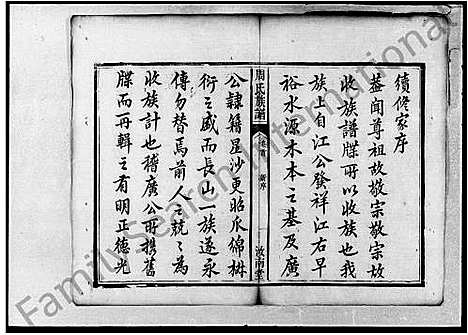 續修家序
蓋聞尊祖故敬宗敬宗故
收族譜牒所以收族也我
族上自江公發祥江右早
裕水源木本之基及廣
周氏族譜
卷首 新序
汝南堂
公隸籍星沙更昭瓜綿椒
衍之盛而長山一族遂永
傳勿替焉前人之兢兢為
收族計也稽廣公所携舊
牒而再輯之者明正德光
FamilySearch International